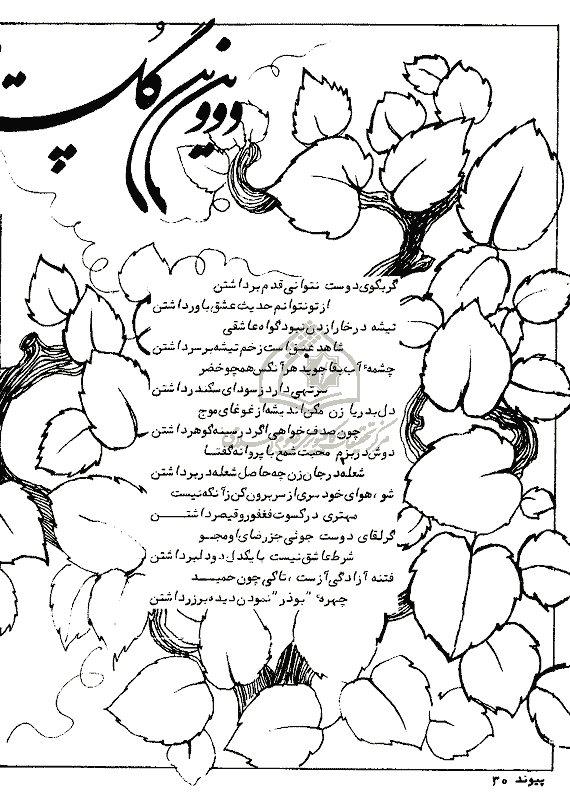 گل
گربکوی دوست نتوانی قدم برداشتن
از تو نتوانم حدیث عشق باور داشتن
تیشه در خارا زدن نبود گواه عاشقی
شاهد عشق است زخم تیشه بر سر داشتن
چشمهٔ آب بقا جوید هر آنکس همچو خضر
سر تهی دارد ز سودای سکندر داشتن
دل بدریا زن مکن اندیشه از غوغای موج
چون صدف خواهی اگر در سینه گوهر داشتن
دوش در بزم محبت شمع با پروانه گفتا
شعله در جان زن چه حاصل شعله در بر داشتن
شو ، هوای خود سری از سر برون کن زآنکه نیست
مهتری در کسوت فغفور و قیصر داشتن
گر لقای دوست جوئی جز رضای او مجو
شرط عاشق نیست با یکدل دو دلبر داشتن
فتنه آزادگی آز ست ، تا کی چون حمید
چهرهٔ "بوذر" نمودن دیده بر زر داشتن
پیوند ۳۰